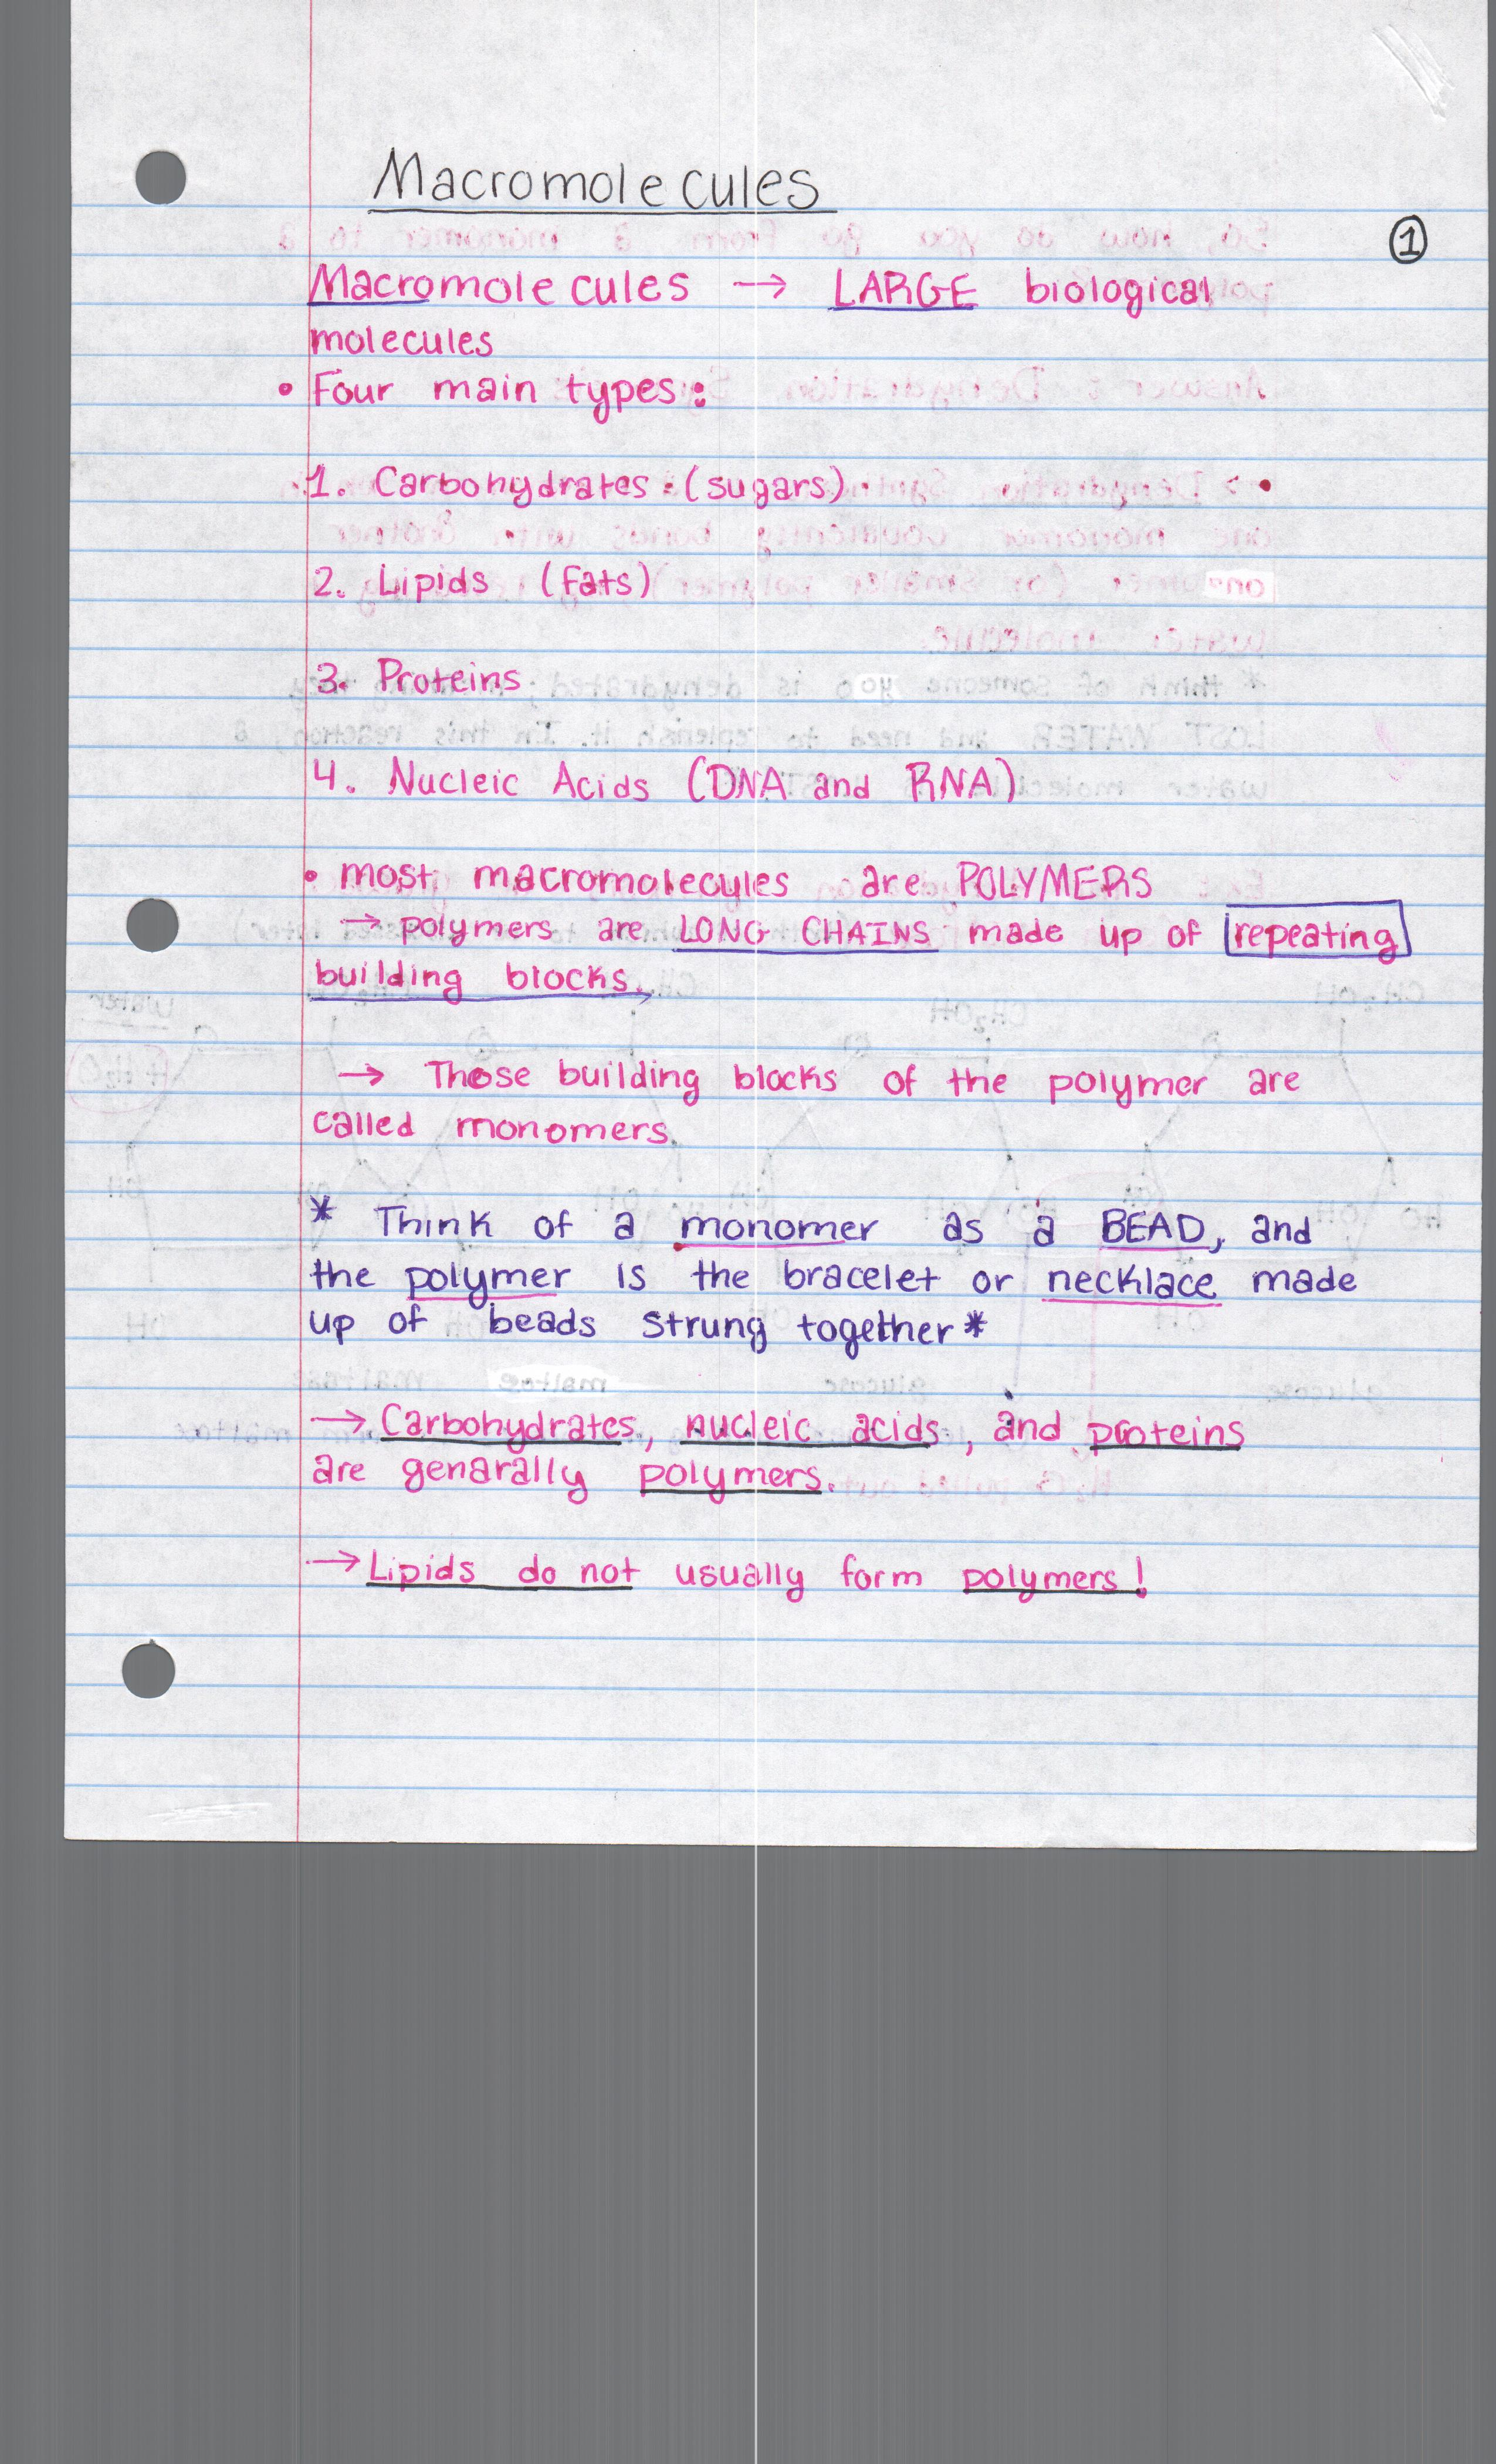 Macromolecules
1
Macromolecules → LARGE biological
molecules
• Four main types:
1. Carbohydrates (sugars)
2. Lipids (fats)
3. Proteins
4. Nucleic Acids (DNA and RNA)
• most macromolecules are POLYMERS
→ polymers are LONG CHAINS made up of repeating
building blocks.
→ Those building blocks of the polymer are
called monomers.
* Think of a monomer as a BEAD, and
the polymer is the bracelet or necklace made
up of beads strung together *
→ Carbohydrates, nucleic acids, and proteins
are genarally polymers.
→ Lipids do not usually form polymers!